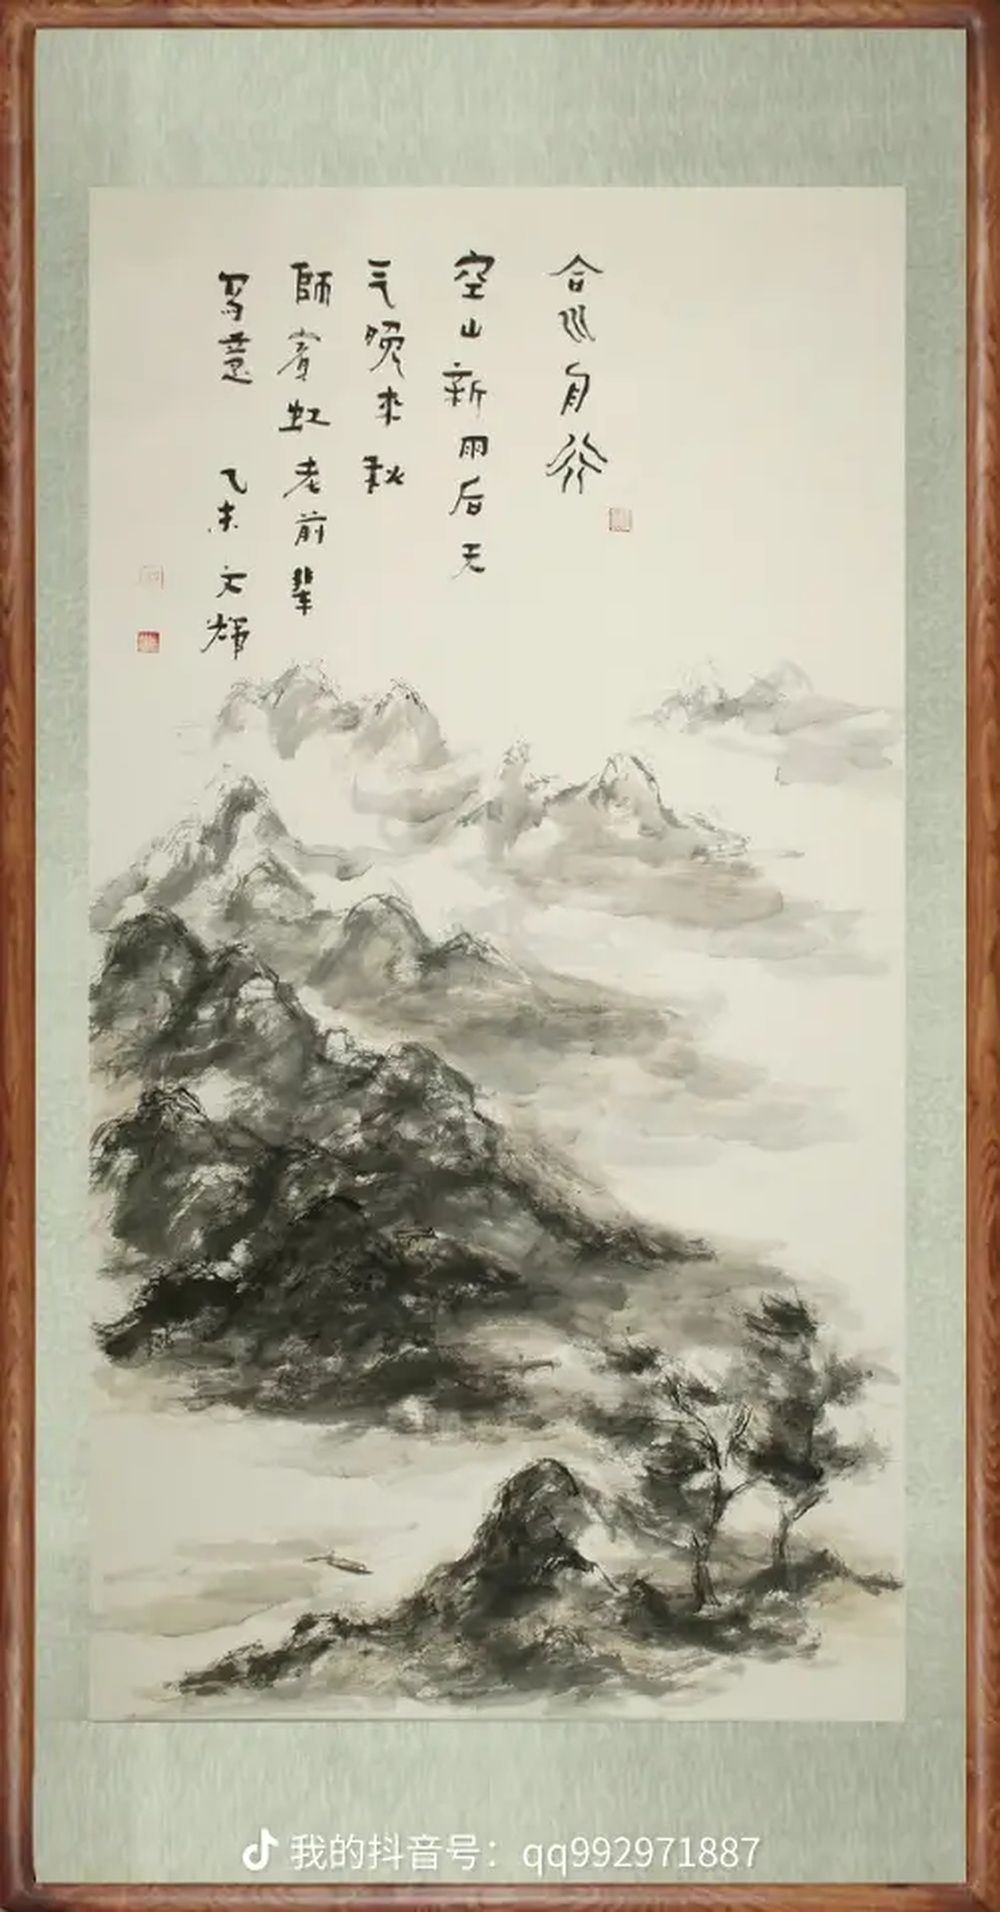 空山新雨后天
气晚来秋
師賓虹老前辈
写意 乙未文輝
我的抖音号：qq992971887